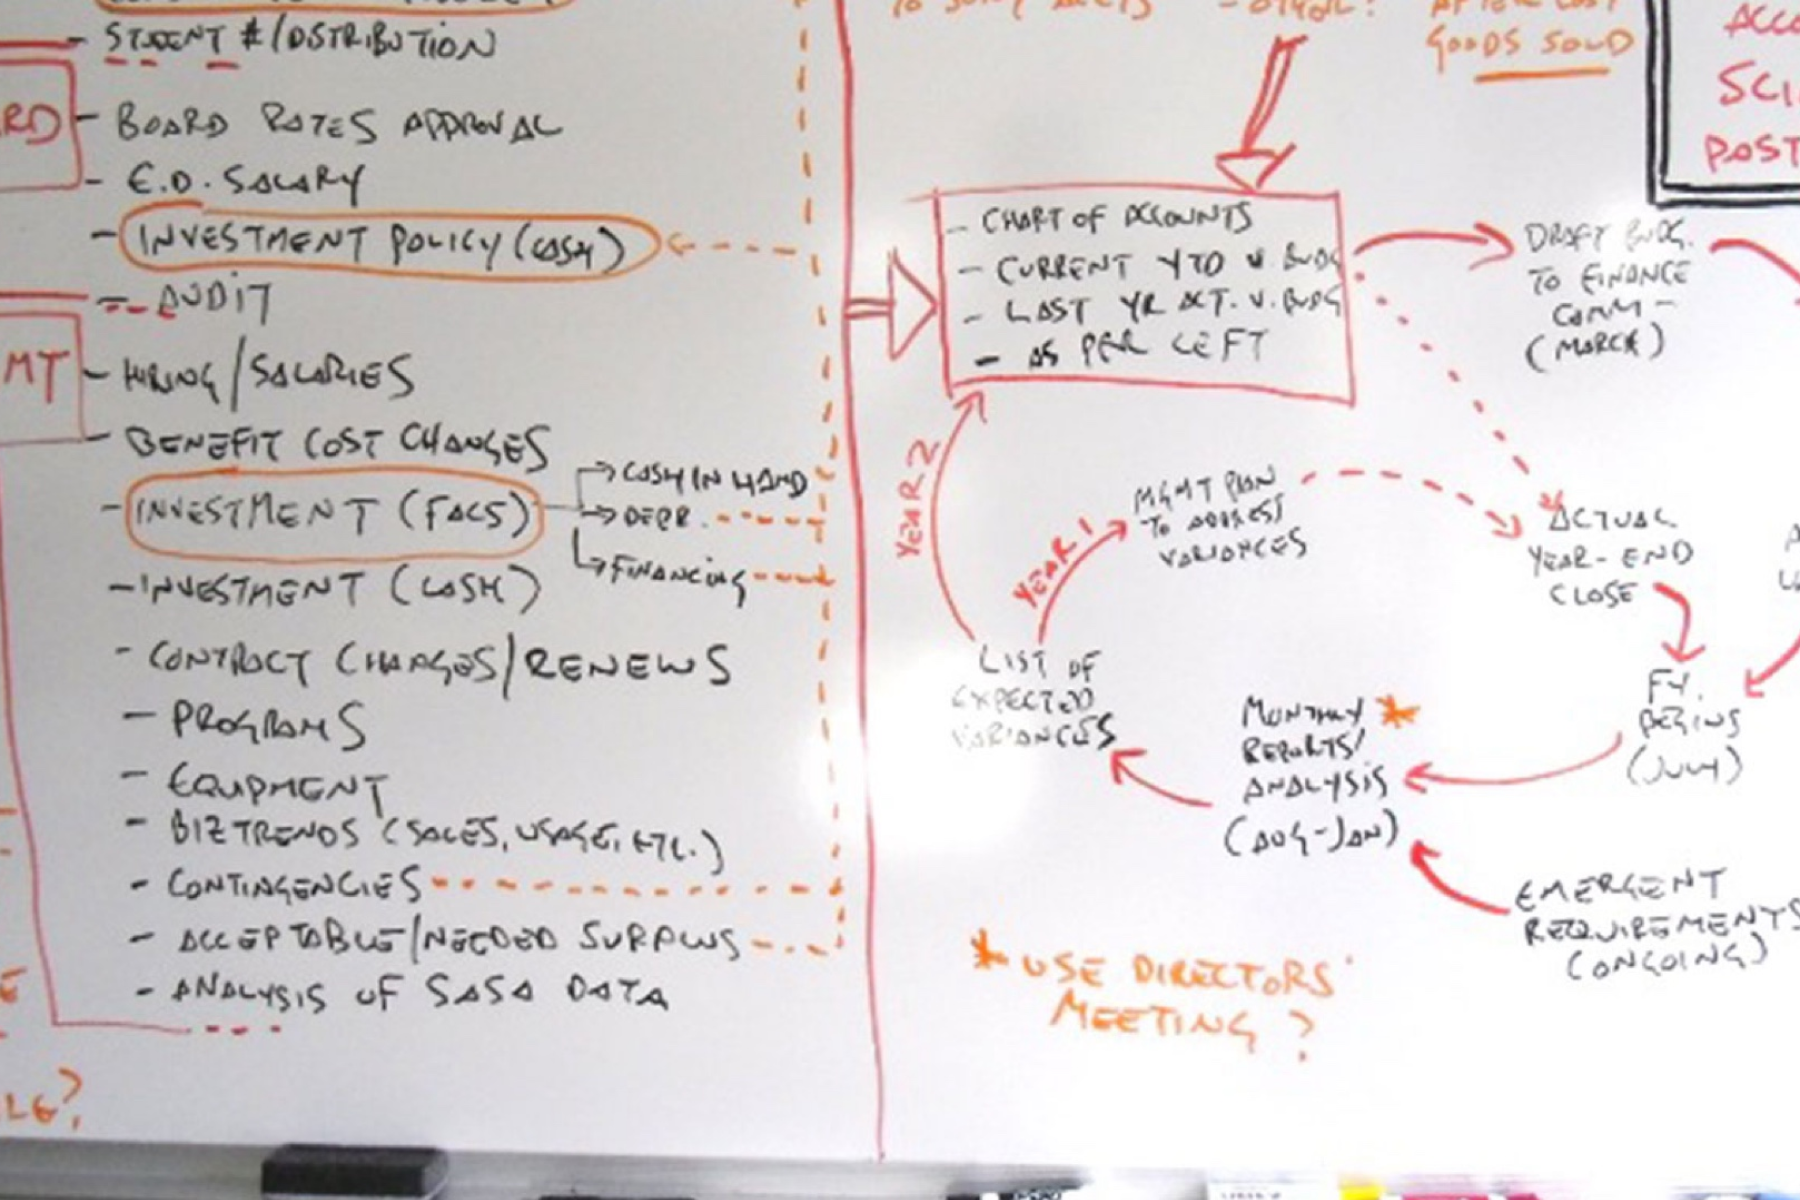 - STUDENT #/DISTRIBUTION
RD
- BOARD RATES APPROVAL
- E.D. SALARY
- INVESTMENT POLICY (CASH)
- AUDIT
MT
- HIRING/SALARIES
- BENEFIT COST CHANGES
- INVESTMENT (FACS)
CASH IN HAND
DEPR.
FINANCING
- INVESTMENT (CASH)
- CONTRACT CHANGES/RENEWS
- PROGRAMS
- EQUIPMENT
- BIZ TRENDS (SALES, USAGE, ETC.)
- CONTINGENCIES
- ACCEPTABLE/NEEDED SURPLUS
- ANALYSIS OF SASA DATA
LE?
- OTHER?
AFTER COST
GOODS SOLD
ACCO
SCI
POST
- CHART OF ACCOUNTS
- CURRENT YTD V. BUDG
- LAST YR ACT. V. BUDG
- AS PER LEFT
DRAFT BUDG.
TO FINANCE
COMM -
(MARCH)
YEAR 2
YEAR 1
MGMT PLAN
TO ADDRESS
VARIANCES
ACTUAL
YEAR-END
CLOSE
LIST OF
EXPECTED
VARIANCES
MONTHLY *
REPORTS/
ANALYSIS
(AUG-JAN)
F.Y.
BEGINS
(JULY)
EMERGENT
REQUIREMENTS
(ONGOING)
* USE DIRECTORS'
MEETING?